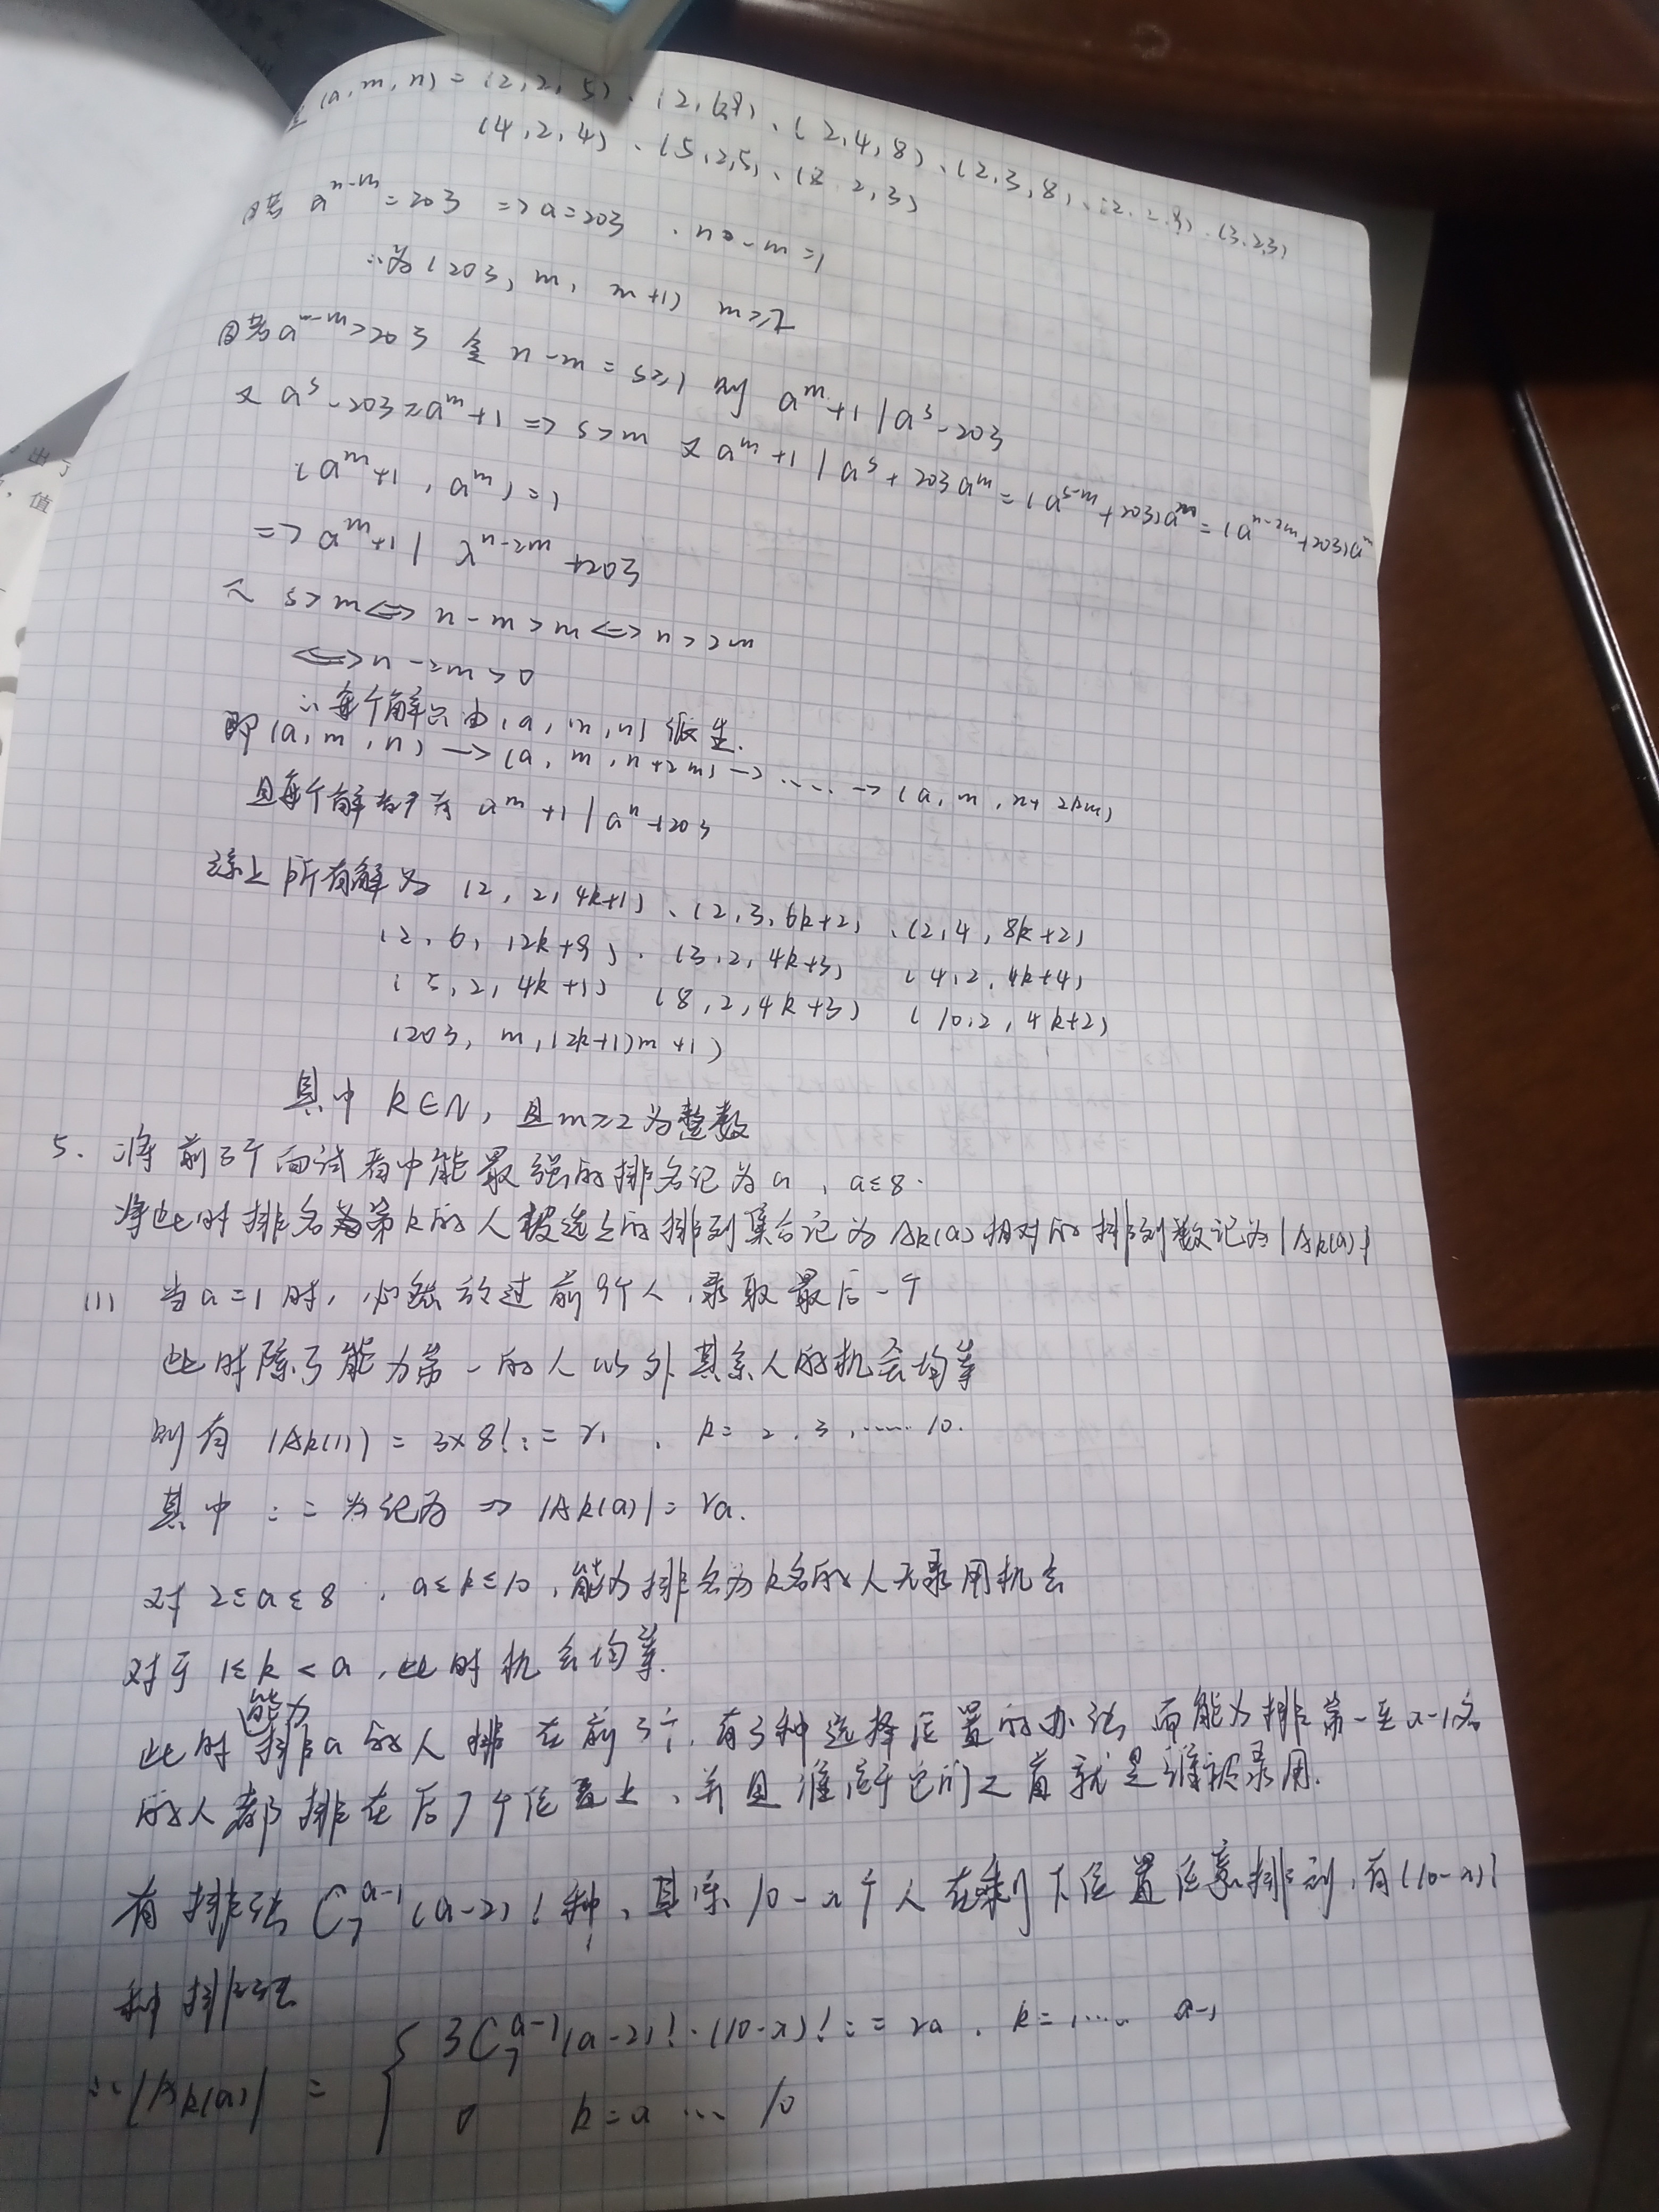 (a, m, n) = (2, 2, 5)、(2, 6, 9)、(2, 4, 8)、(2, 3, 8)、(2, 2, 9)、(3, 2, 3)
(4, 2, 4)、(5, 2, 5)、(8, 2, 3)
②若 a^{n-m} = 203 => a = 203 , n - m = 1
∴为 (203, m, m+1) m≥2
③若 a^{n-m} > 203 令 n-m = s≥1 则 a^m+1 | a^s - 203
又 a^s - 203 ≥ a^m+1 => s > m 又 a^m+1 | a^s + 203a^m = (a^{s-m} + 203)a^m = (a^{n-2m} + 203)a^m
(a^m+1, a^m) = 1
=> a^m+1 | a^{n-2m} + 203
又 s > m <=> n-m > m <=> n > 2m
<=> n-2m > 0
∴每个解只由 (a, m, n) 派生.
即 (a, m, n) —> (a, m, n+2m) —> ...... —> (a, m, n+2km)
且每个解都为 a^m+1 | a^n+203
综上所有解为 (2, 2, 4k+1)、(2, 3, 6k+2)、(2, 4, 8k+2)
(2, 6, 12k+9)、(3, 2, 4k+3) (4, 2, 4k+4)
(5, 2, 4k+1) (8, 2, 4k+3) (10, 2, 4k+2)
(203, m, (2k+1)m+1)
其中 k∈N, 且 m≥2 为整数
5. 将前3个面试者中能最强的排名记为a , a≤8.
将此时排名为第k的人被选上的排列集合记为Ak(a)相对的排列数记为|Ak(a)|
(1) 当a=1时, 必然放过前9个人,录取最后一个
此时除了能力第一的人以外其余人的机会均等
则有 |Ak(1)| = 3×8! := r1 , k = 2, 3, ...... 10.
其中 := 为记为 => |Ak(a)| = ra.
对 2≤a≤8 , a≤k≤10, 能力排名为k名的人无录用机会
对于 1≤k<a , 此时机会均等.
此时能力排a的人排在前3个, 有3种选择位置的办法 而能力排第一至a-1名
的人都排在后7个位置上、并且谁居于它们之首就是谁被录用.
有排法 C_7^{a-1}(a-2)! 种、其余10-a个人在剩下位置任意排列, 有(10-a)!
种排法
∴|Ak(a)| = { 3C_7^{a-1}(a-2)!·(10-a)! := ra , k = 1 .... a-1
0 k = a ... 10